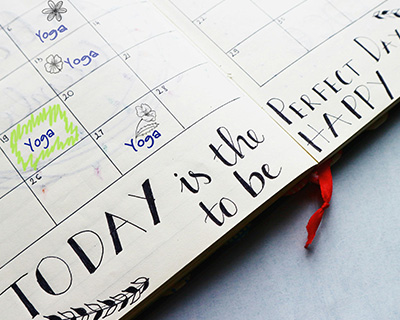 Yoga
Yoga
22
20
29
19
Yoga
27
Yoga
26
TODAY is the PERFECT DAY
to be HAPPY